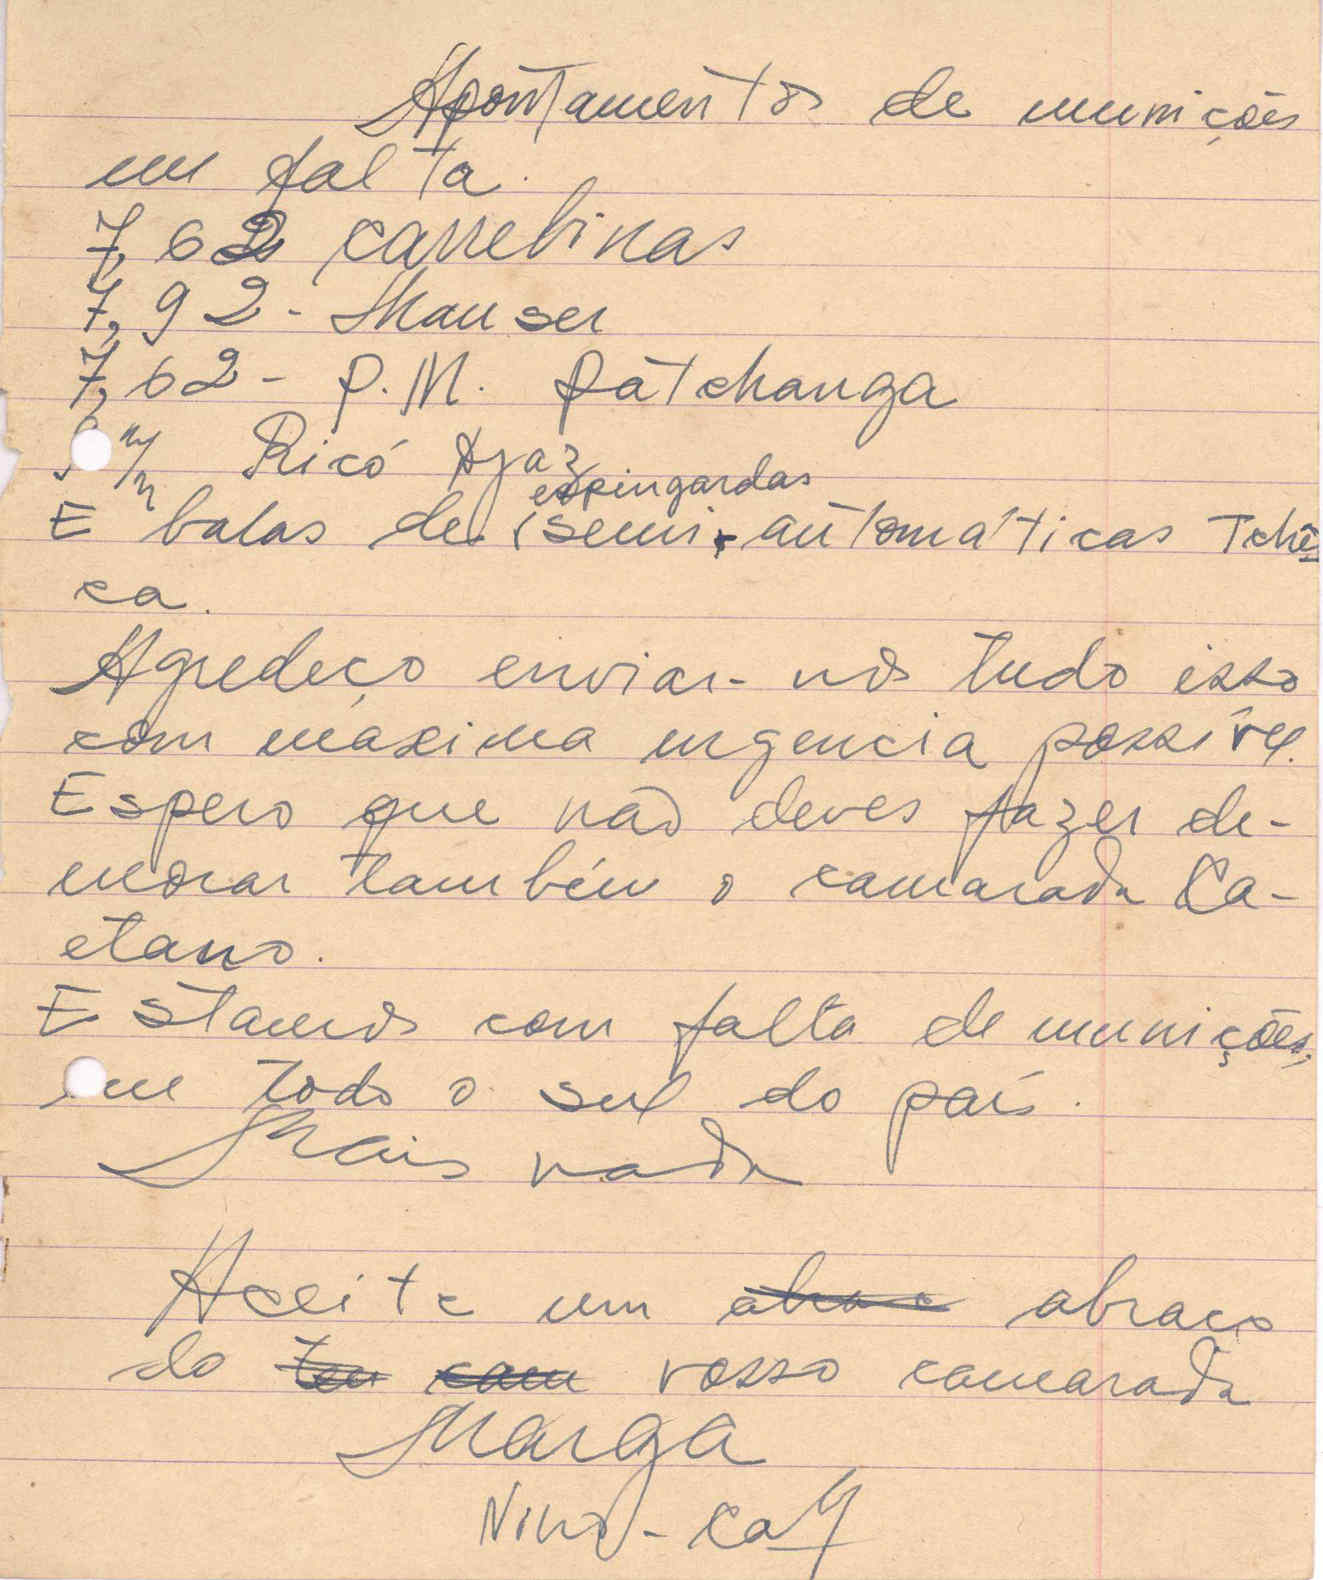 Apontamentos de munições
em falta.
7,62 carrebinas
7,92 - Mauser
7,62 - P.M. Patchanga
9 m/m Ricó Ajaz
espingardas
E balas de (semi-automáticas Tchê-
ca.
Agredeço enviar-nos tudo isso
com máxima urgencia possível.
Espero que não deves fazer de-
morar também o camarada Ca-
etano.
Estamos com falta de munições,
em todo o sul do país.
Mais nada
Aceite um abrac abraço
do teu cam vosso camarada
Marga
Nino -